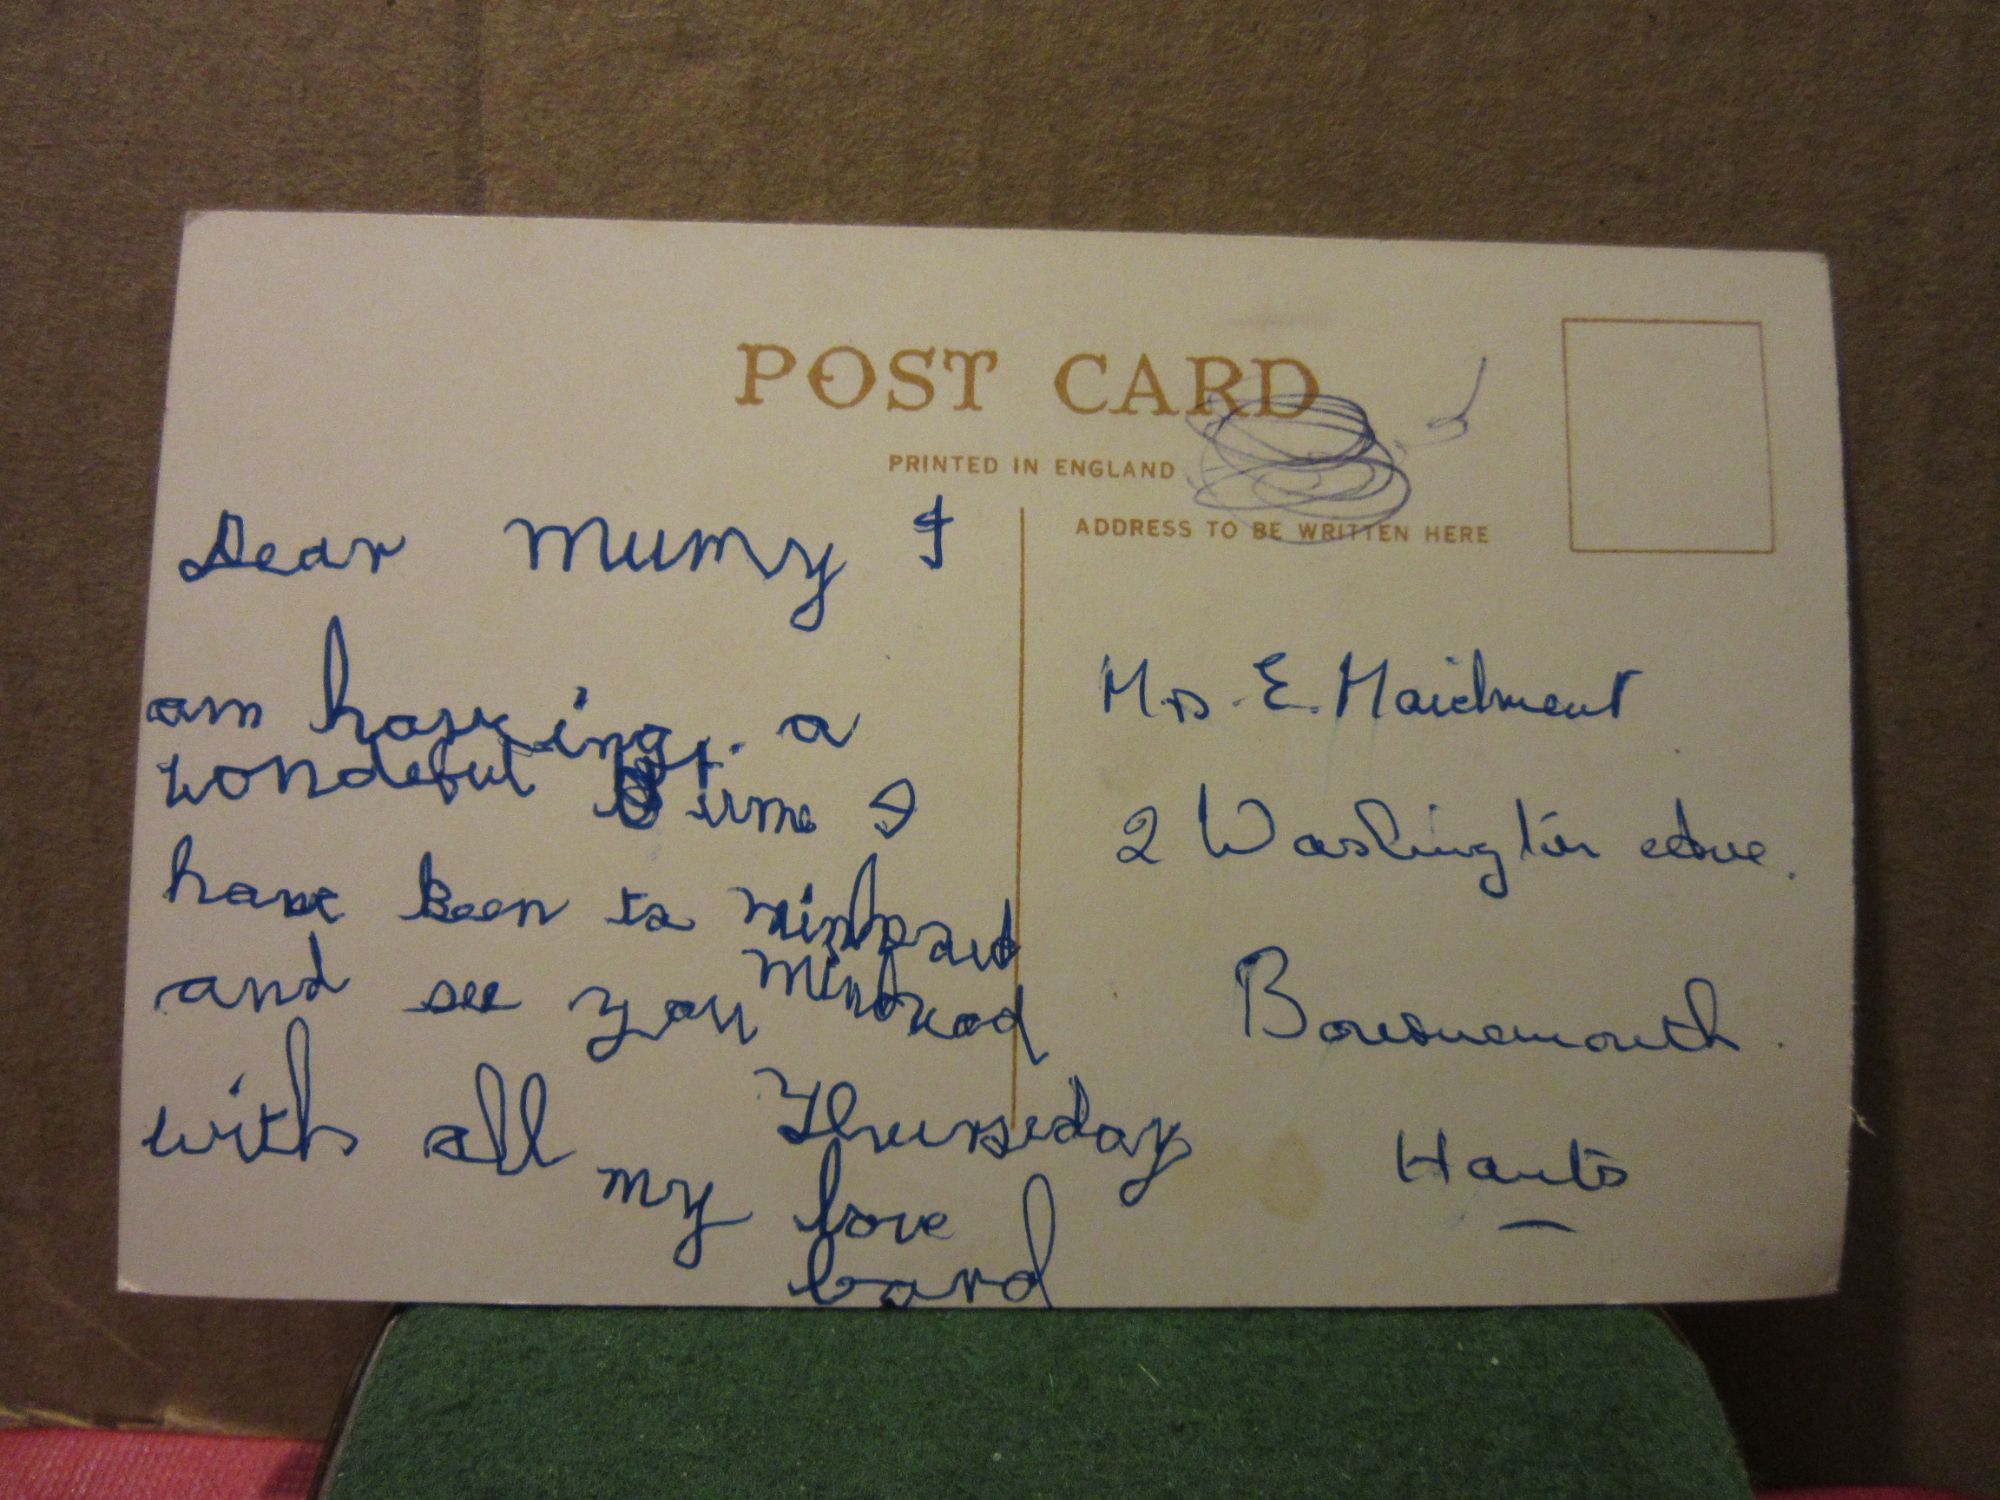 POST CARD
PRINTED IN ENGLAND
ADDRESS TO BE WRITTEN HERE
Dear Mumy I
am having a
wondeful time I
have been to
and see you
with all Thurseday
my love
Mrs. E. Maidment
2 Washington
Bournemouth.
Hants